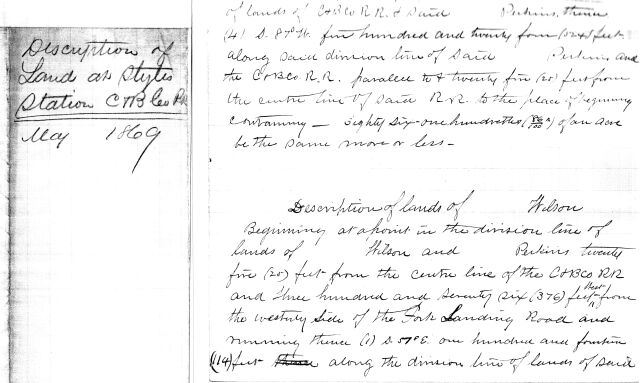 Description of
Land at Styles
Station C & B Co RR
May 1869
of lands of C & B Co R.R. & Said Perkins, thence
(4) S. 87° W. five hundred and twenty four (524) feet
along said division line of Said Perkins and
the C & B Co. R.R. parallel to & twenty five (25) feet from
the centre line of said R & R. to the place of beginning
Containing — Eighty Six-one hundredths (86/100) of an Acre
be the same more or less —
Description of lands of Wilson
Beginning at a point in the division line of
lands of Wilson and Perkins twenty
five (25) feet from the centre line of the C & B Co RR
and three hundred and seventy six (376) feet from
the westerly side of the Fork Landing Road and
running thence (1) S 57° E. one hundred and fourteen
(114) feet along the division line of lands of said